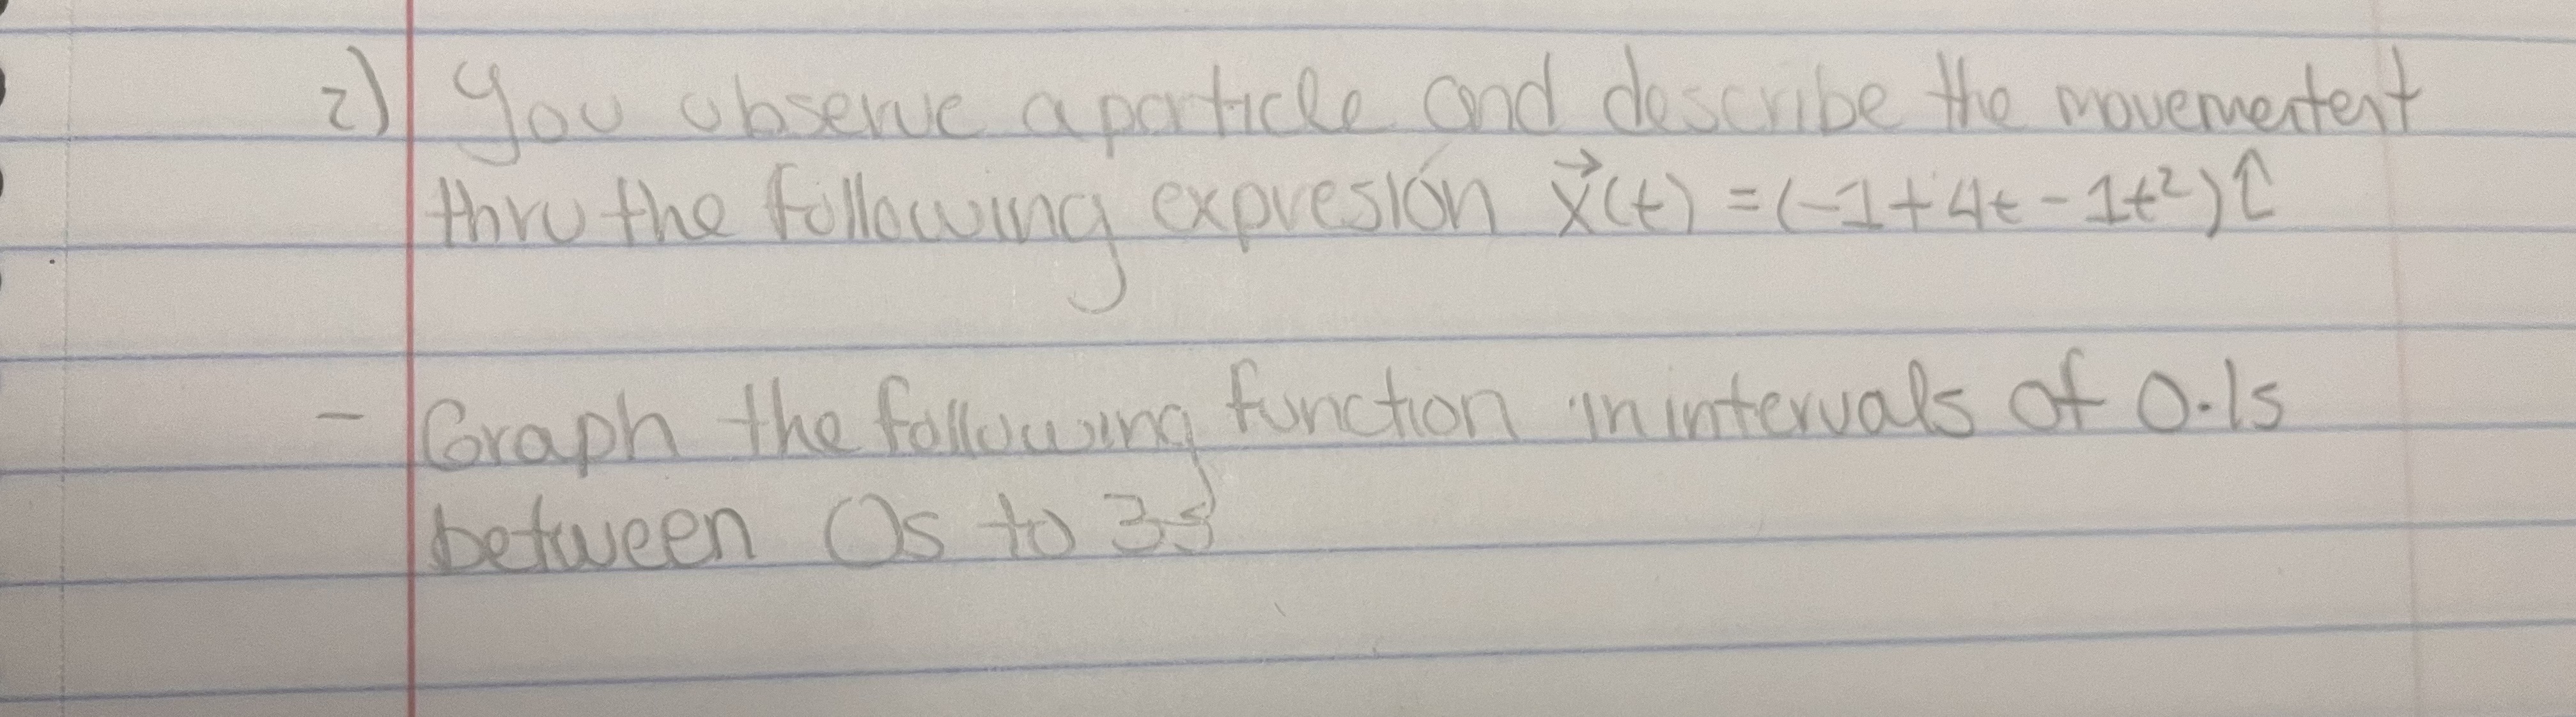 2) You observe a particle and describe the movementent
thru the following expresión x⃗(t) = (-1+4t-1t²) î
- Graph the following function in intervals of 0.1s
between 0s to 3s